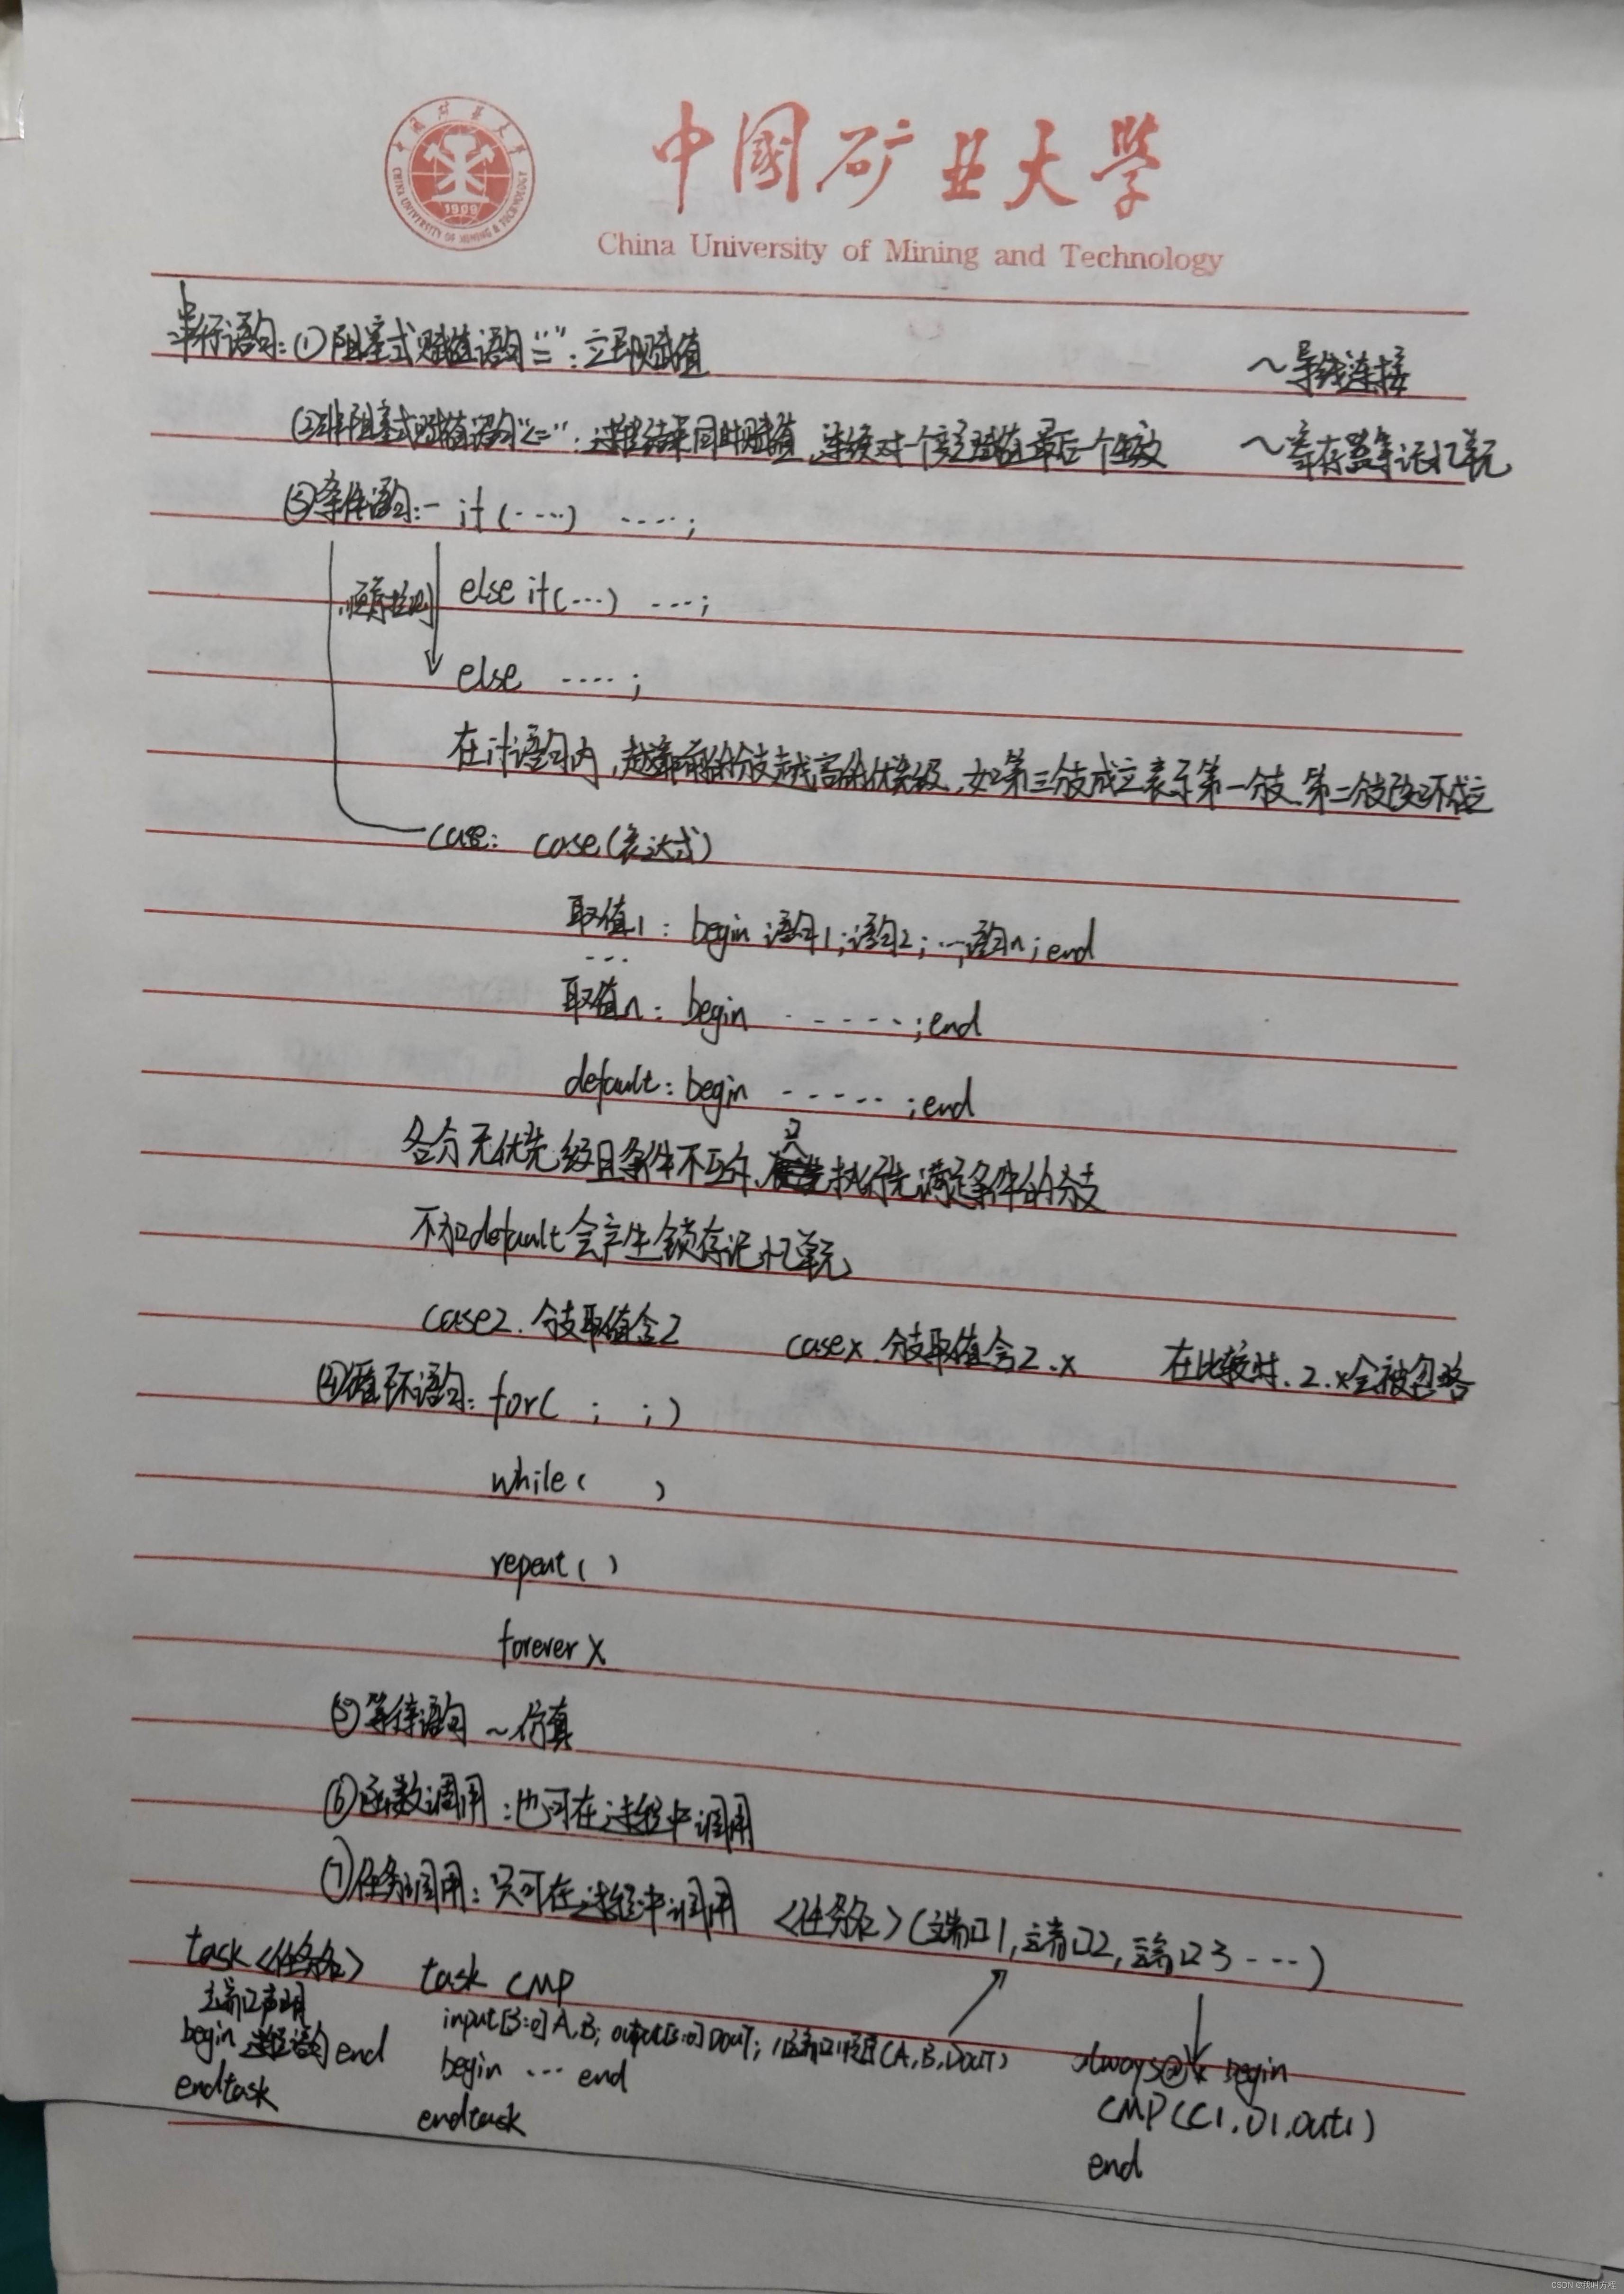 中国矿业大学
China University of Mining and Technology
CHINA UNIVERSITY OF MINING & TECHNOLOGY
1909
串行语句:①阻塞式赋值语句“=”:立即赋值 ~导线连接
②非阻塞式赋值语句“<=”:过程结束同时赋值,连续对一个变量赋值最后一个生效 ~寄存器等记忆单元
③条件语句:- if(····) ····;
顺序 else if(···) ···;
else ····;
在if语句内,越靠前的分支越高的优先级,如第三分支成立表示第一分支、第二分支 不成立
case: case(表达式)
取值1: begin 语句1;语句2;…;语句n;end
···
取值n: begin ······;end
default: begin ······;end
各分 无优先级且条件不 执行先满足条件的分支
不加default会产生锁存记忆单元
casez.分支取值含z casex.分支取值含z.x 在比较时.z.x会被忽略
④循环语句: for( ; ;)
while( )
repeat( )
forever X
⑤等待语句 ~仿真
⑥函数调用:也可在过程中调用
⑦任务调用:只可在过程中调用 <任务名>(端口1,端口2,端口3 ····)
task <任务名>
端口声明
begin 过程语句 end
endtask
task CMP
input[3:0]A,B; output[3:0]DOUT; //端口顺序(A,B,DOUT)
begin ··· end
endtask
always@* begin
CMP(C1,D1,out1)
end
CSDN @我叫方程